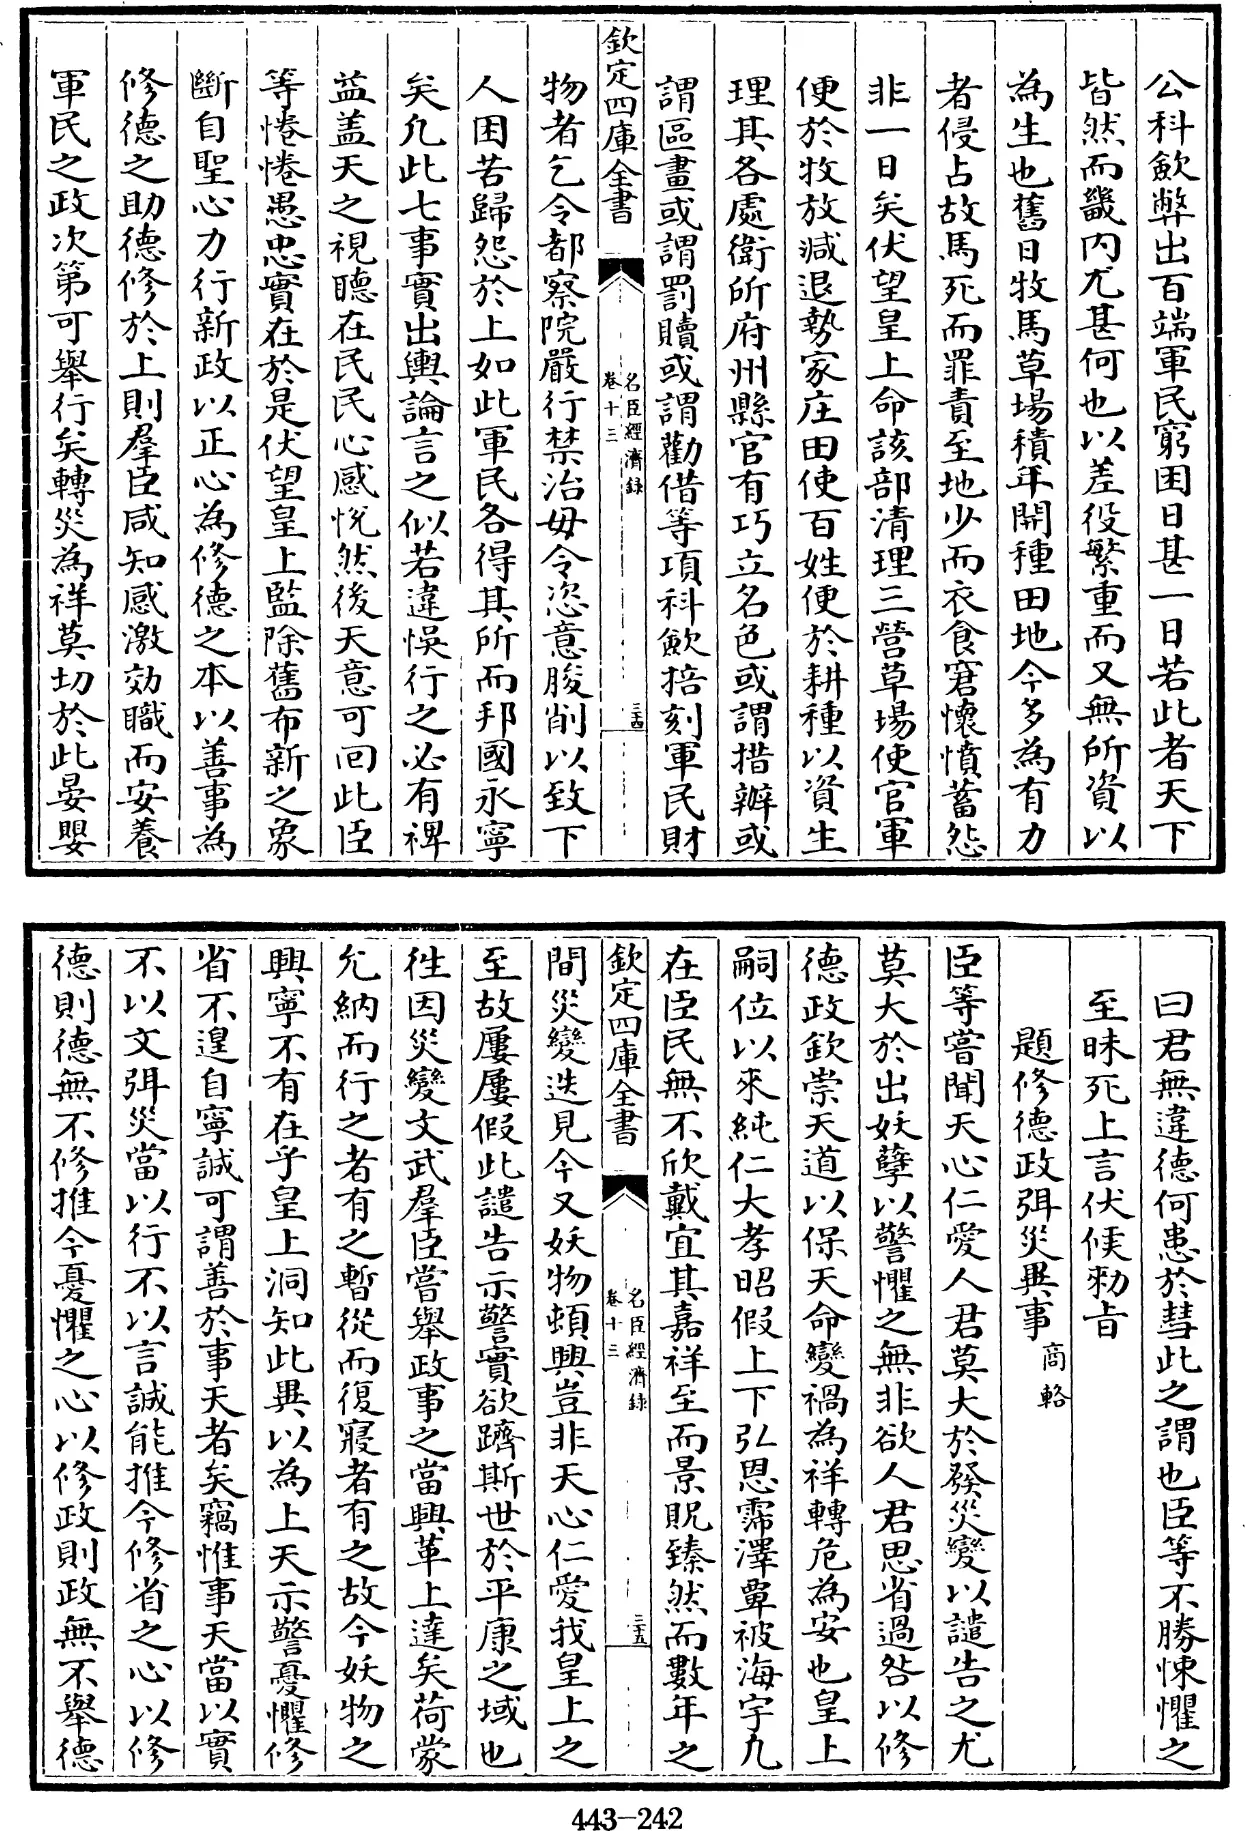 公科歛弊出百端軍民窮困日甚一日若此者天下
皆然而畿内尤甚何也以差役繁重而又無所資以
為生也舊日牧馬草場積年開種田地今多為有力
者侵占故馬死而罪責至地少而衣食窘懷憤蓄怨
非一日矣伏望皇上命該部清理三營草場使官軍
便於牧放減退勢家庄田使百姓便於耕種以資生
理其各處衛所府州縣官有巧立名色或謂措辦或
謂區畫或謂罰贖或謂勸借等項科歛掊刻軍民財
欽定四庫全書
名臣經濟録
卷十三
三十四
物者乞令都察院嚴行禁治毋令恣意朘削以致下
人困苦歸怨於上如此軍民各得其所而邦國永寧
矣凢此七事實出輿論言之似若違悞行之必有裨
益盖天之視聽在民民心感悅然後天意可回此臣
等惓惓愚忠實在於是伏望皇上監除舊布新之象
斷自聖心力行新政以正心為修德之本以善事為
修德之助德修於上則羣臣咸知感激効職而安養
軍民之政次第可舉行矣轉災為祥莫切於此晏嬰
曰君無違德何患於彗此之謂也臣等不勝悚懼之
至昧死上言伏候勑旨
題修德政弭災異事 商輅
臣等嘗聞天心仁愛人君莫大於發災變以譴告之尤
莫大於出妖孽以警懼之無非欲人君思省過咎以修
德政欽崇天道以保天命變禍為祥轉危為安也皇上
嗣位以來純仁大孝昭假上下弘恩霈澤覃被海宇凢
在臣民無不欣戴宜其嘉祥至而景貺臻然而數年之
欽定四庫全書
名臣經濟録
卷十三
三十五
間災變迭見今又妖物頓興豈非天心仁愛我皇上之
至故屢屢假此譴告示警實欲躋斯世於平康之域也
徃因災變文武羣臣嘗舉政事之當興革上達矣荷蒙
允納而行之者有之暫從而復寢者有之故今妖物之
興寧不有在乎皇上洞知此異以為上天示警憂懼修
省不遑自寧誠可謂善於事天者矣竊惟事天當以實
不以文弭災當以行不以言誠能推今修省之心以修
德則德無不修推今憂懼之心以修政則政無不舉德
443-242